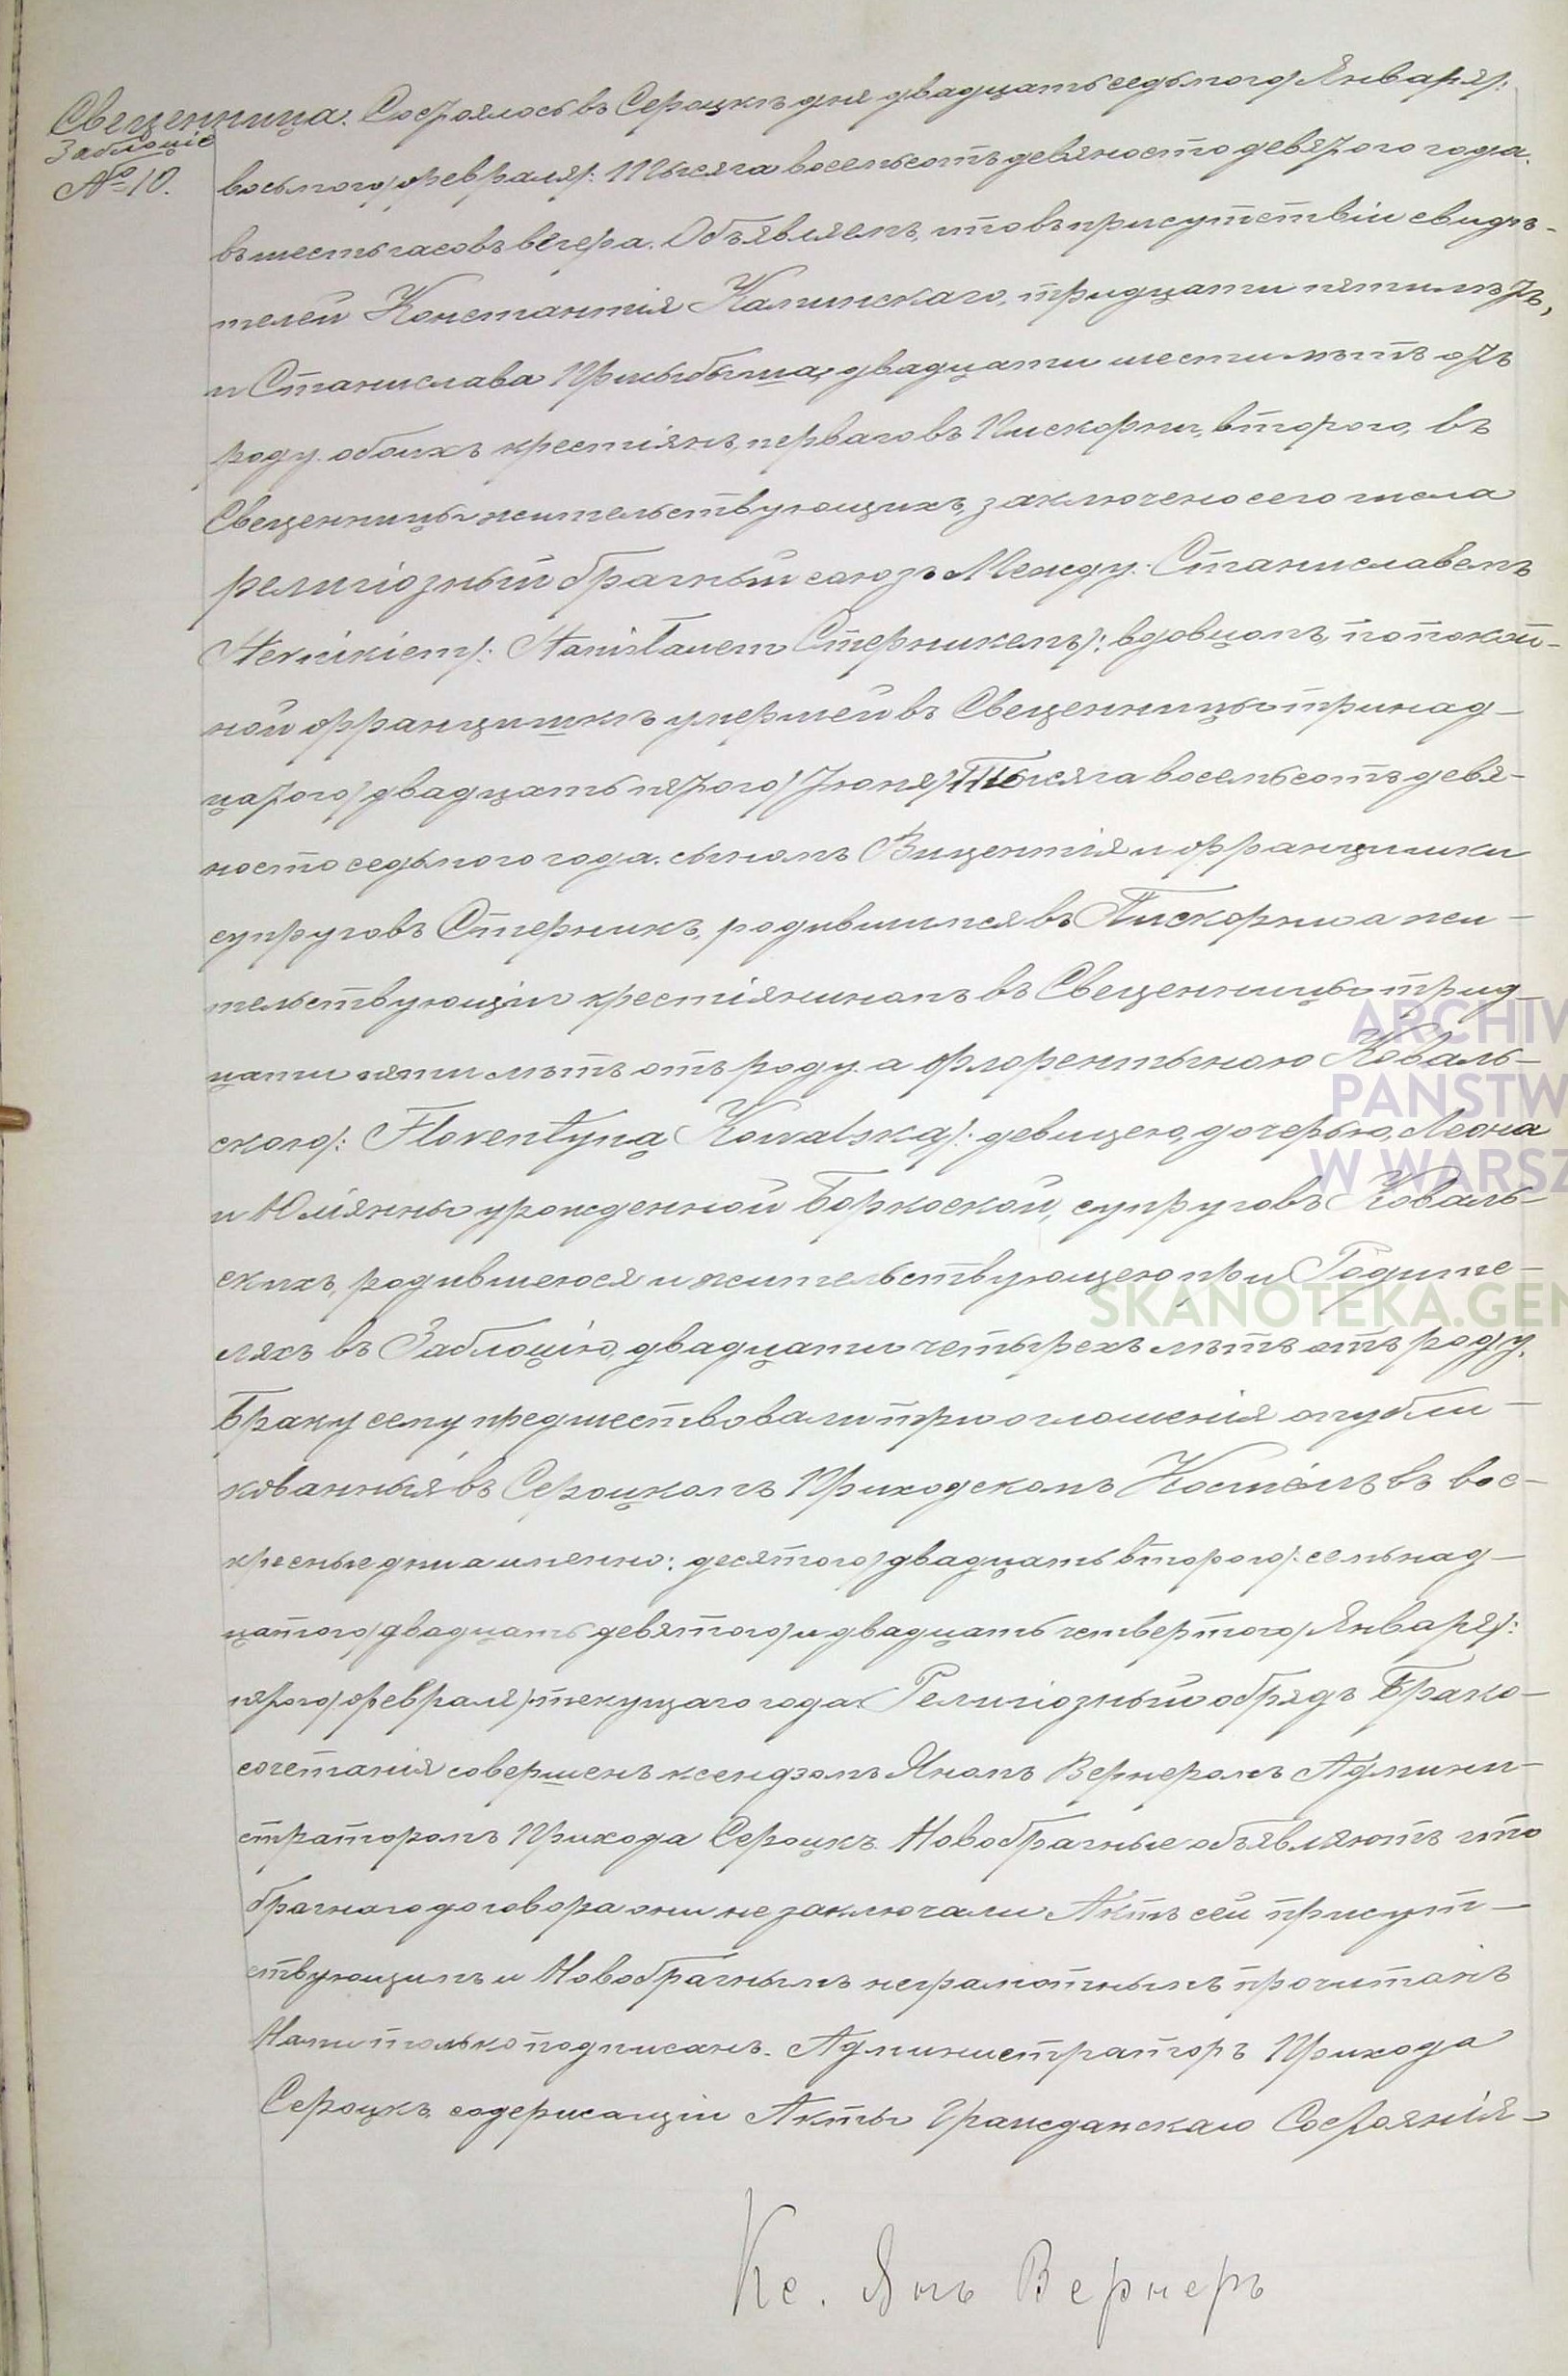 Свещенница.
Заблоціе
№ 10.
Состоялось въ Сероцкѣ дня двадцать седьмого/Января/:
восьмого/февраля/: Тысяча восемьсотъ девяносто девятого года.
въ шесть часовъ вечера. Объявляемъ, что въ присутствіи свидѣ-
телей Константія Калинскаго, тридцати пяти лѣтъ,
и Станислава Пршыбыша, двадцати шести лѣтъ отъ
роду. обоихъ крестіянъ, перваго въ Пискорни, второго, въ
Свещенницы жительствующихъ, заключено сего числа
религіозный брачный союзъ Между: Станиславемъ
Sternikiem/: Stanisławem Стерникемъ/: вдовцомъ, по покой-
ной Францишкѣ умершей въ Свещенницы тринад-
цатого/двадцать пятого/Іюня/Тысяча восемьсотъ девя-
носто седьмого года. сыномъ Вицентія и Францишки
супруговъ Стерникъ, родившимся въ Пискорни а жи-
тельствующім крестіяниномъ въ Свещенницы трид-
цати пяти лѣтъ отъ роду. а Флорентыною Коваль-
скою/: Florentyną Kowalską/: девицею, дочерью, Леона
и Юліянны урожденной Боркоской, супруговъ Коваль-
скихъ, родившеюся и жительствующею при Родите-
ляхъ въ Заблоцію, двадцати четырехъ лѣтъ отъ роду.
Браку сему предшествовали три оглошенія опубли-
кованныя въ Сероцкомъ Приходскомъ Костёлѣ въ вос-
кресные дни а именно: десятого/двадцать второго/: семьнад-
цатого/двадцать девятого/и двадцать четвертого/Января/:
пятого/февраля/текущаго года. Религіозный обрядъ Брако-
сочетанія совершенъ ксендзомъ Яномъ Вернеромъ Админи-
страторомъ Прихода Сероцкъ. Новобрачные объявляютъ что
брачнаго договора они не заключали Актъ сей присут-
ствующимъ и Новобрачнымъ неграмотнымъ прочитанъ
Нами только подписанъ. Администраторъ Прихода
Сероцкъ, содержащій Акты Гражданскаго Состоянія-
Кс. Янъ Вернеръ
ARCHIW
PAŃSTW
W WARSZ
SKANOTEKA.GEN